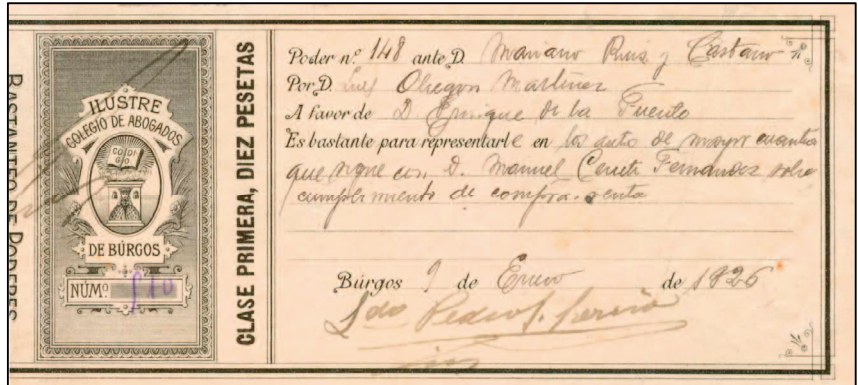 BASTANTEO DE PODERES
ILUSTRE
COLEGIO DE ABOGADOS
CODI
GO
DE BÚRGOS
NÚMº
CLASE PRIMERA, DIEZ PESETAS
Poder n.º 148 ante D. Mariano Ruiz y Castaño
Por D. Luis Obregon Martinez
A favor de D. Enrique de la Fuente
Es bastante para representarle en los auto de mayor cuantia
que sigue con D. Manuel Fernandez sobre
cumplimiento de compra-venta
Búrgos 9 de Enero de 1926
Ldo Pedro J. García